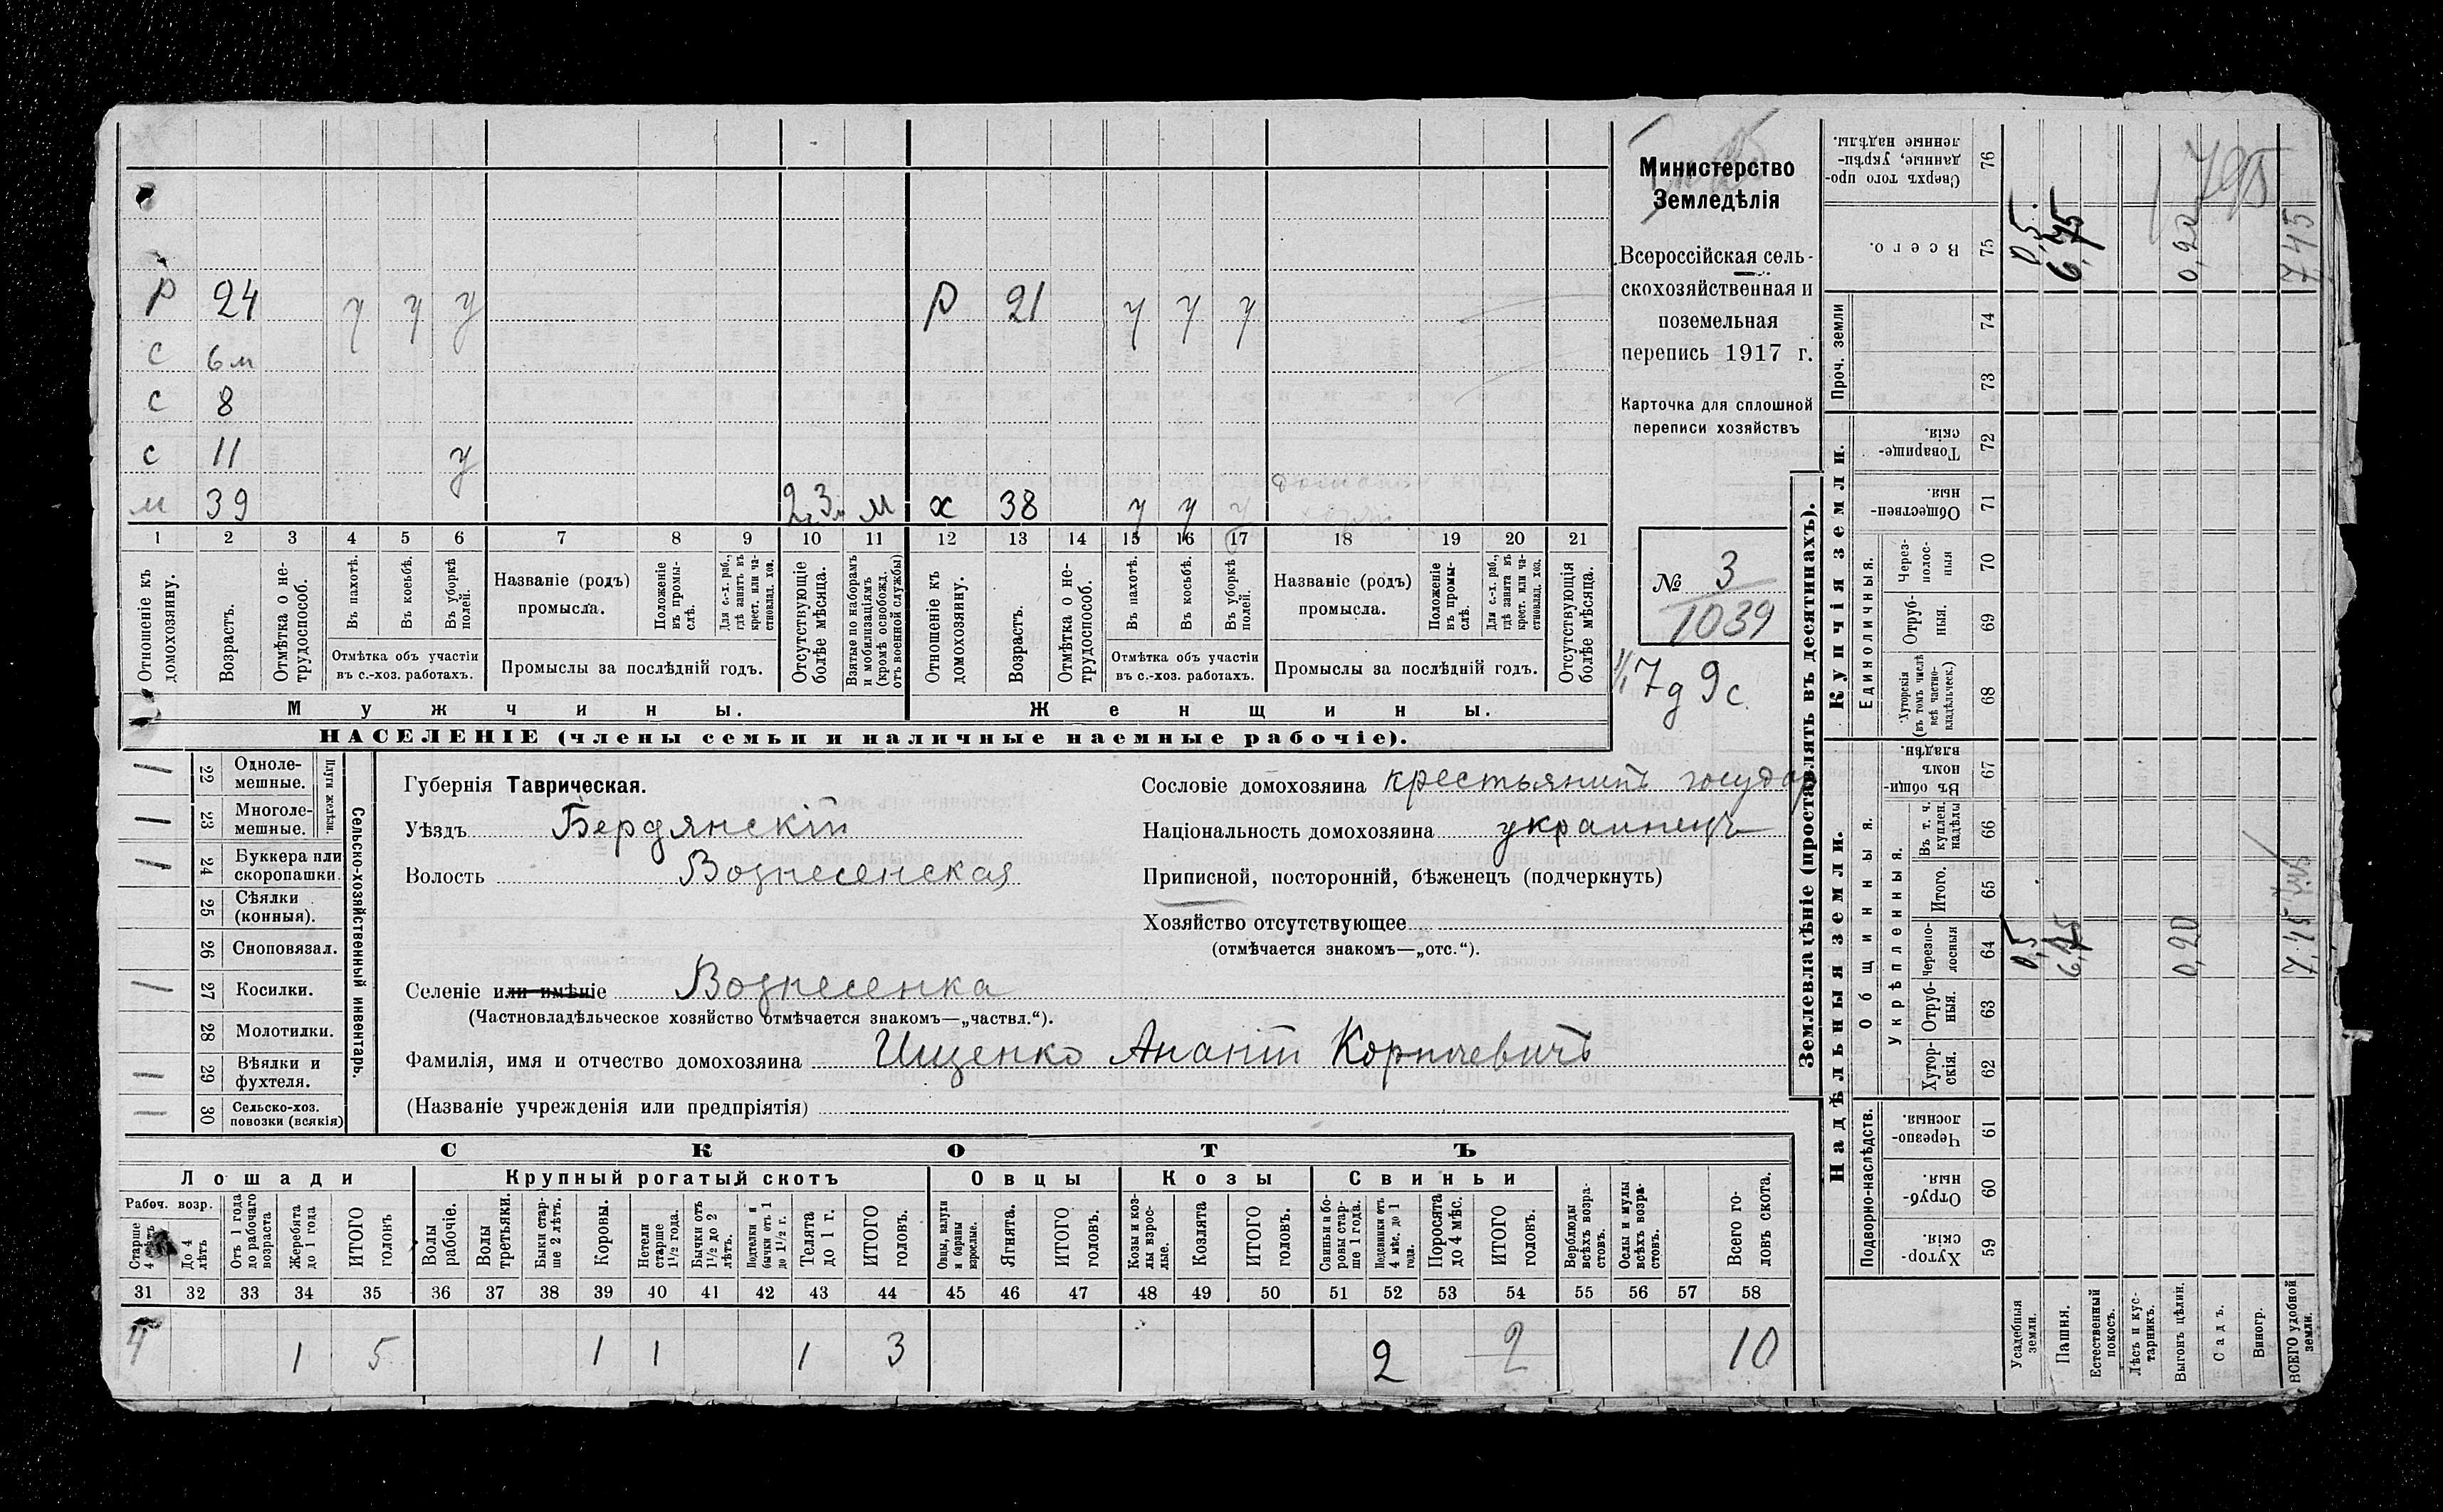 Министерство
Земледѣлія
Всероссійская сель-
скохозяйственная и
поземельная
перепись 1917 г.
Карточка для сплошной
переписи хозяйствъ
№ 3
1039
7 д 9 с.
Р 24 у у у Р 21 у у у
с 6 м
с 8
с 11 у
м 39 2 г. 3 м М х 38 у у у
1 2 3 4 5 6 7 8 9 10 11 12 13 14 15 16 17 18 19 20 21
Отношеніе къ домохозяину.
Возрастъ.
Отмѣтка о не-трудоспособ.
Въ пахотѣ.
Въ косьбѣ.
Въ уборкѣ полей.
Отмѣтка объ участіи
въ с.-хоз. работахъ.
Названіе (родъ)
промысла.
Положеніе въ промы-слѣ.
Для с.-х. раб., гдѣ занятъ въ крест. или ча-стновлад. хоз.
Промыслы за послѣдній годъ.
Отсутствующіе болѣе мѣсяца.
Взятые по наборамъ и мобилизаціямъ (кромѣ освобожд. отъ военной службы)
Отношеніе къ домохозяину.
Возрастъ.
Отмѣтка о не-трудоспособ.
Въ пахотѣ.
Въ косьбѣ.
Въ уборкѣ полей.
Отмѣтка объ участіи
въ с.-хоз. работахъ.
Названіе (родъ)
промысла.
Положеніе въ промы-слѣ.
Для с.-х. раб., гдѣ занята въ крест. или ча-стновлад. хоз.
Промыслы за послѣдній годъ.
Отсутствующія болѣе мѣсяца.
Мужчины. Женщины.
НАСЕЛЕНІЕ (члены семьи и наличные наемные рабочіе).
Сельско-хозяйственный инвентарь.
Плуги желѣзн.
22 Одноле-мешные.
23 Многоле-мешные.
24 Буккера или скоропашки.
25 Сѣялки (конныя).
26 Сноповязал.
27 Косилки.
28 Молотилки.
29 Вѣялки и фухтеля.
30 Сельско-хоз. повозки (всякія)
Губернія Таврическая.
Уѣздъ Бердянскій
Волость Вознесенская
Селеніе или имѣніе Вознесенка
(Частновладѣльческое хозяйство отмѣчается знакомъ—„частвл.“).
Фамилія, имя и отчество домохозяина Ищенко Анатій Корниевичъ
(Названіе учрежденія или предпріятія)
Сословіе домохозяина крестьянинъ государ
Національность домохозяина украинецъ
Приписной, посторонній, бѣженецъ (подчеркнуть)
Хозяйство отсутствующее
(отмѣчается знакомъ—„отс.“).
СКОТЪ
Лошади Крупный рогатый скотъ Овцы Козы Свиньи
Рабоч. возр.
Старше 4 лѣтъ
До 4 лѣтъ
Отъ 1 года до рабочаго возраста
Жеребята до 1 года
ИТОГО головъ
Волы рабочіе.
Волы третьяки.
Быки стар-ше 2 лѣтъ.
Коровы.
Нетели старше 1½ года.
Бычки отъ 1½ до 2 лѣтъ.
Подтелки и бычки отъ 1 до 1½ г.
Телята до 1 г.
ИТОГО головъ.
Овцы, валухи и бараны взрослые.
Ягнята.
ИТОГО головъ.
Козы и коз-лы взрос-лые.
Козлята
ИТОГО головъ.
Свиньи и бо-ровы стар-ше 1 года.
Подсвинки отъ 4 мѣс. до 1 года.
Поросята до 4 мѣс.
ИТОГО головъ.
Верблюды всѣхъ возра-стовъ.
Ослы и мулы всѣхъ возра-стовъ.
Всего го-ловъ скота.
31 32 33 34 35 36 37 38 39 40 41 42 43 44 45 46 47 48 49 50 51 52 53 54 55 56 57 58
4 1 5 1 1 1 3 2 2 10
Землевладѣніе (проставлять въ десятинахъ).
Надѣльныя земли. Купчія земли.
Подворно-наслѣдств.
Общинныя.
Укрѣпленныя.
Единоличныя.
Проч. земли
Хутор-скія. 59
Отруб-ныя. 60
Черезпо-лосныя. 61
Хутор-скія. 62
Отруб-ныя. 63
Черезпо-лосныя 64
Итого. 65
Въ т. ч. куплен. надѣлы 66
Въ общи-номъ владѣн. 67
Хуторскія (въ томъ числѣ всѣ частно-владѣльческ.) 68
Отруб-ныя. 69
Через-полос-ныя 70
Обществен-ныя. 71
Товарище-скія. 72
73
74
Всего. 75
Сверхъ того про-данные, укрѣп-ленные надѣлы. 76
Усадебныя земли. 0,5 0,5
Пашня. 6,75 6,75
Естественный покосъ.
Лѣсъ и кус-тарникъ.
Выгонъ цѣлин. 0,20 0,20
Садъ.
Виногр.
ВСЕГО удобной земли. 7,45 7,45
795